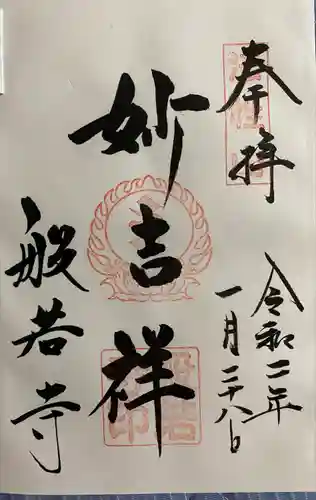 奉拝
令和二年
一月二十八日
妙吉祥
般若寺